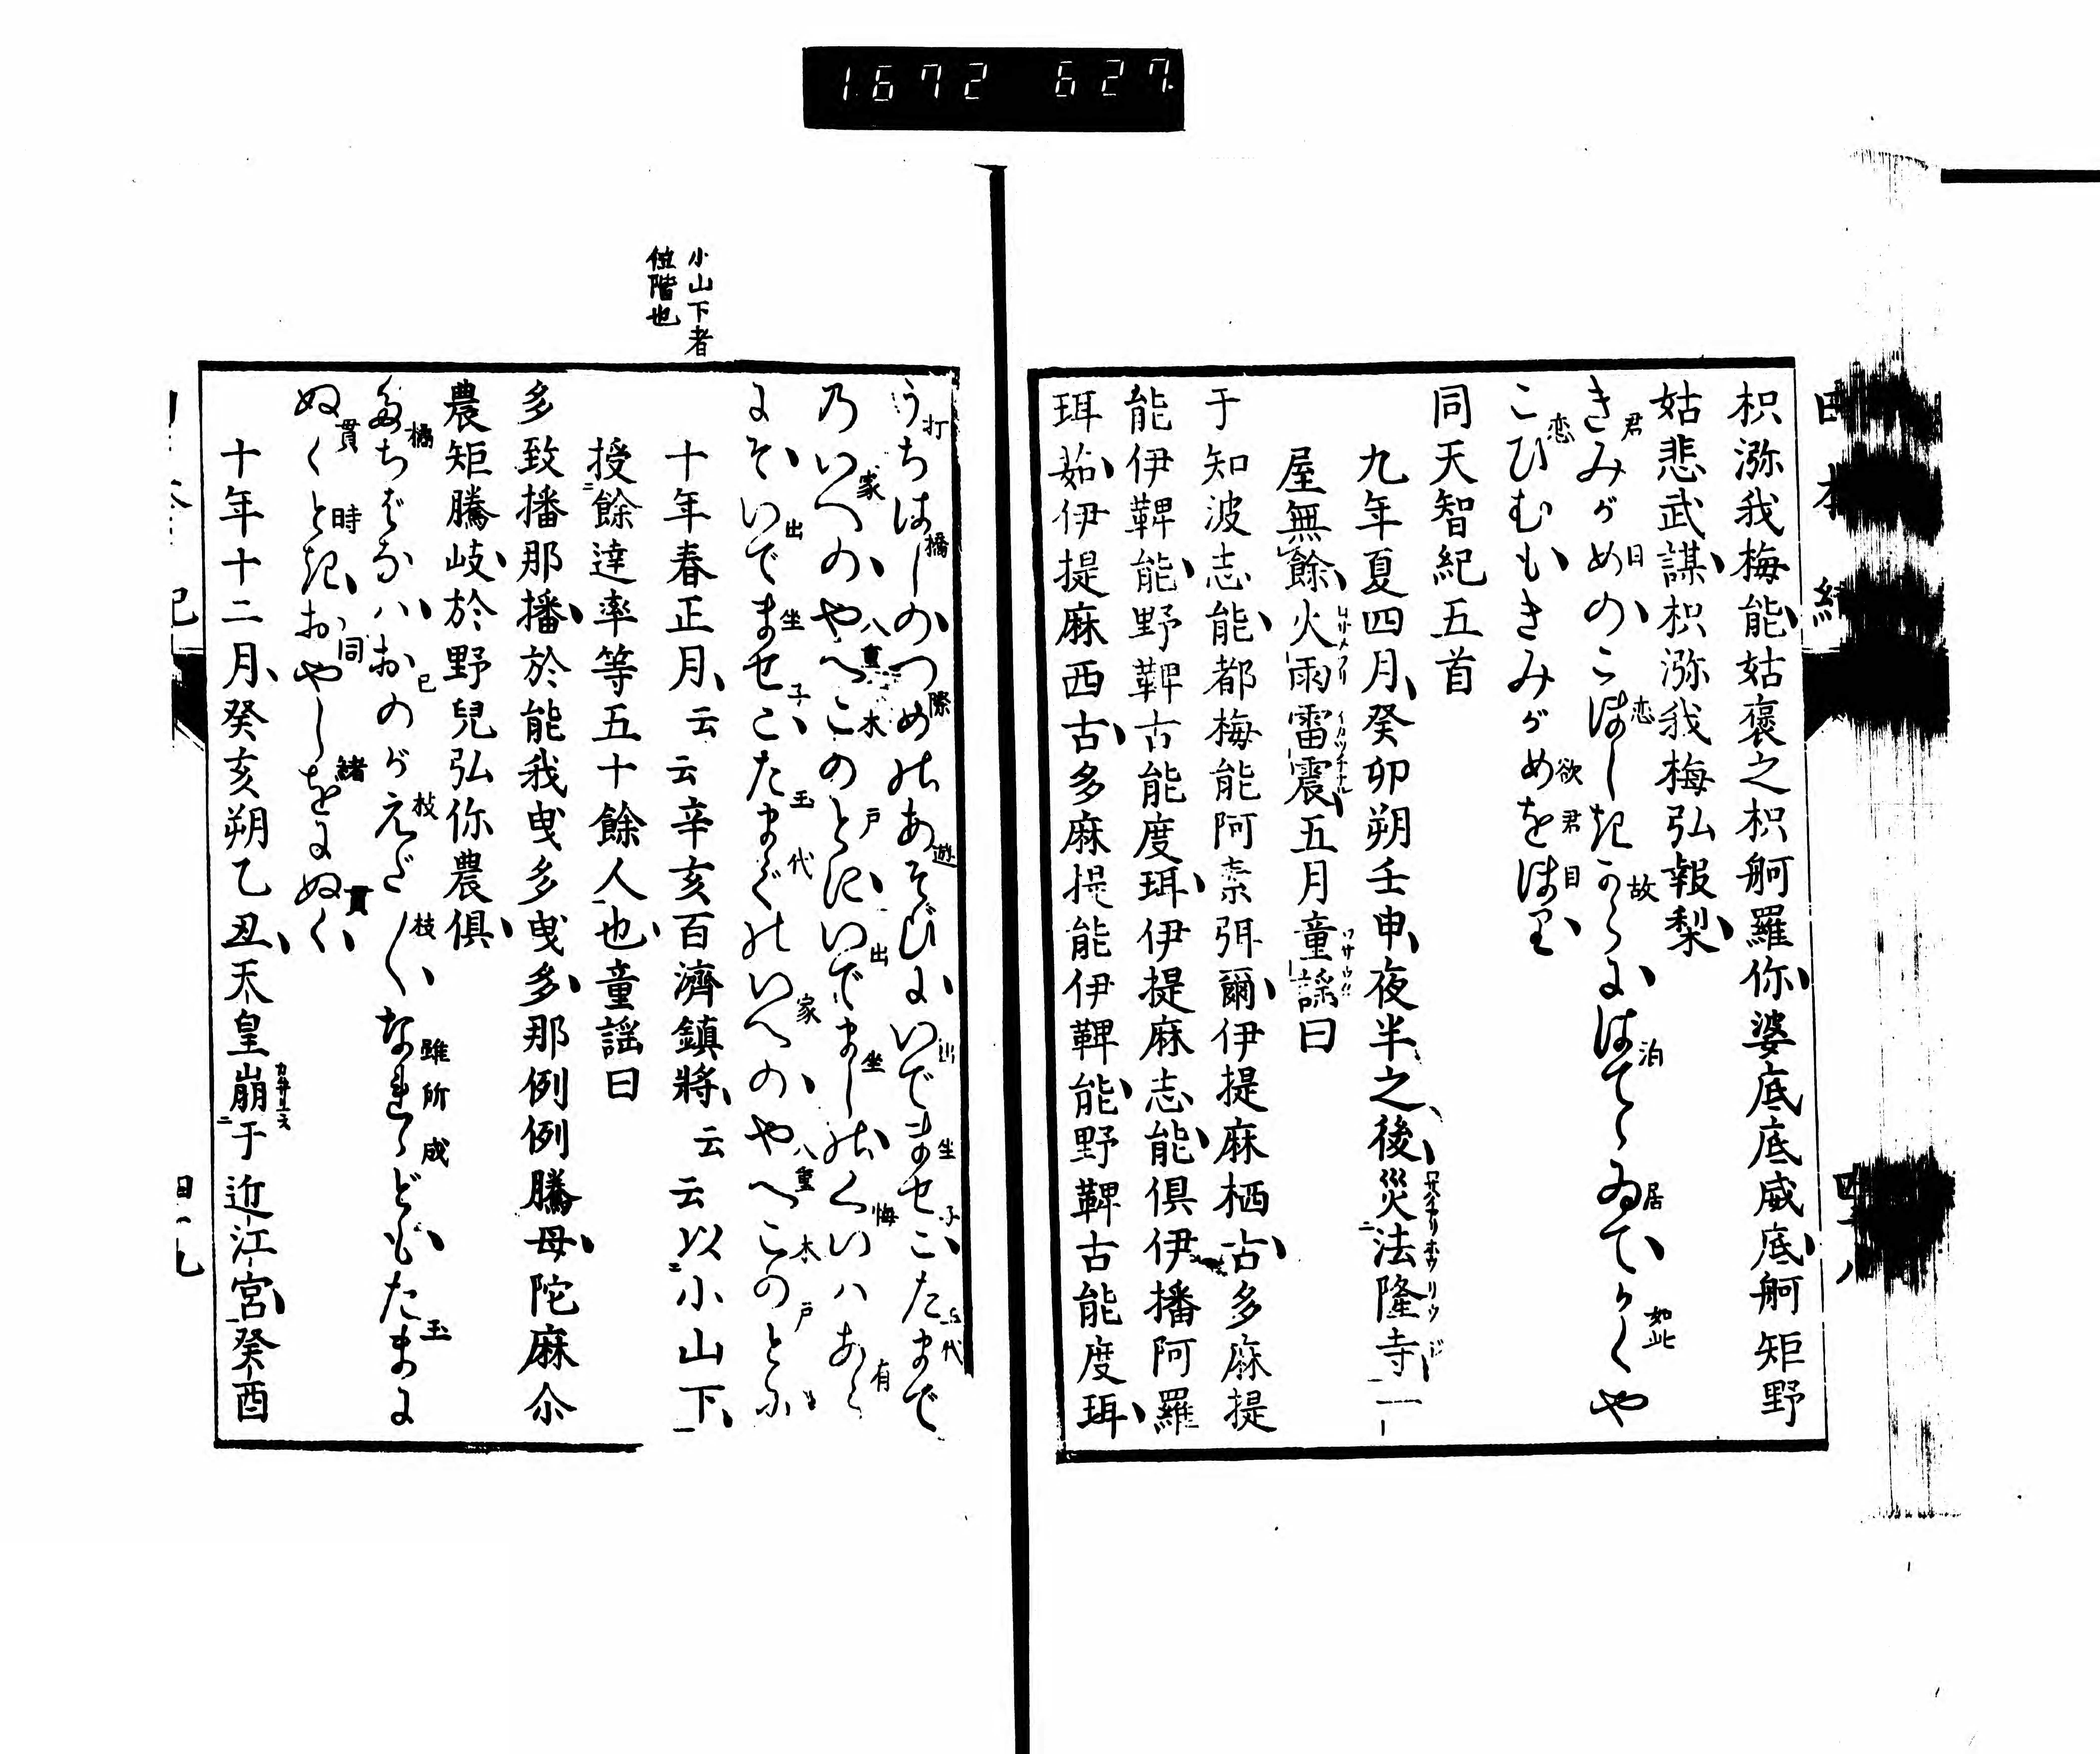 1672 627
日本紀
枳瀰我梅能姑褒之枳舸羅你婆底底威底舸矩野
姑悲武謀枳瀰我梅弘報梨
きみがめのこほしきからにはてゝゐてかくや
君 目 恋 故 泊 居 如此
こひむもきみがめをほり
恋 欲 君 目
同天智紀五首
九年夏四月癸卯朔壬申夜半之後災法隆寺一
屋無餘火雨雷震五月童謡曰
于知波志能都梅能阿素弭爾伊提麻栖古多麻提
能伊鞞能野鞞古能度珥伊提麻志能倶伊播阿羅
珥茹伊提麻西古多麻提能伊鞞能野鞞古能度珥
うちはしのつめのあそびにいでませこたまで
打 橋 際 遊 出 坐 子 玉代
乃いへのやへこのとにいでましのくいハあら
家 八重 木 戸 出 坐 悔 有
にぞいでませこたまでのいへのやへこのとに
出 坐 子 玉 代 家 八重 木 戸
小山下者
位階也
十年春正月云云辛亥百濟鎮將云云以小山下
授餘達率等五十餘人也童謡曰
多致播那播於能我曳多曳多那例例騰母陀麻尒
農矩騰岐於野兒弘你農倶
たちばなハおのがえだ〳〵なれゝどもたまに
橘 已 枝 枝 雖所成 玉
ぬくときおやじをにぬく
貫 時 同 緒 貫
十年十二月癸亥朔乙丑天皇崩于近江宮癸酉